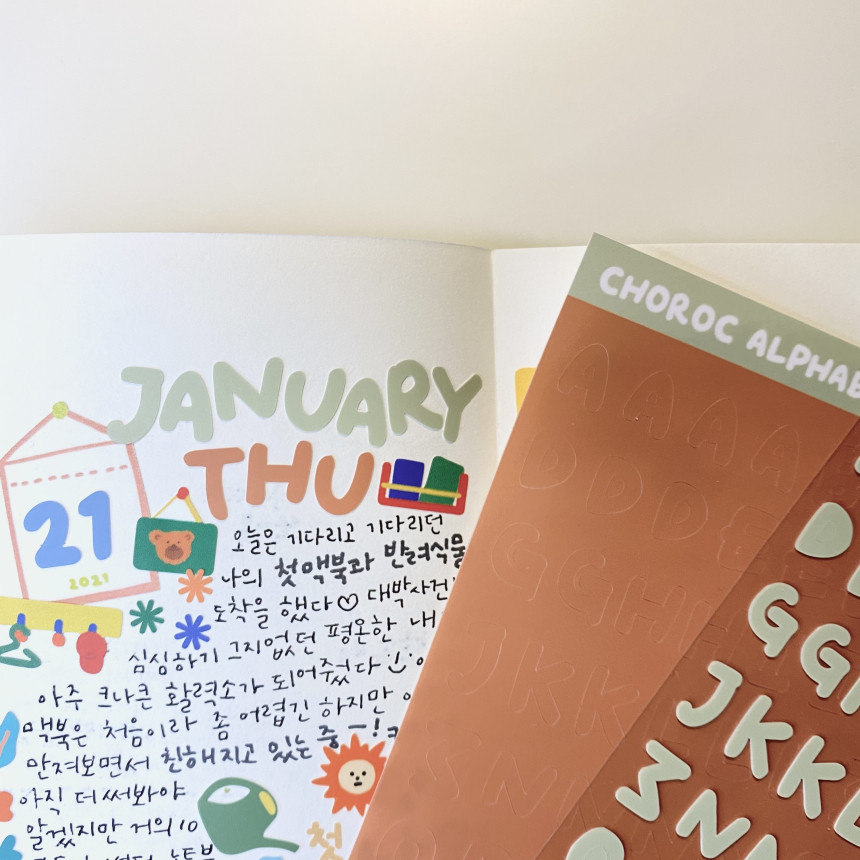 CHOROC ALPHAB
JANUARY
THU
21
2021
오늘은 기다리고 기다리던
나의 첫 맥북과 반려식물
도착을 했다♡ 대박사건
심심하기 그지없던 평온한 내
아주 크나큰 활력소가 되어주었다
맥북은 처음이라 좀 어렵긴 하지만
만져보면서 친해지고 있는 중 ㅡ!
아직 더 써봐야
알겠지만 거의 10
첫
A A A A
D D D
G G H
J K K
N
D
G G
J K K
M
N N